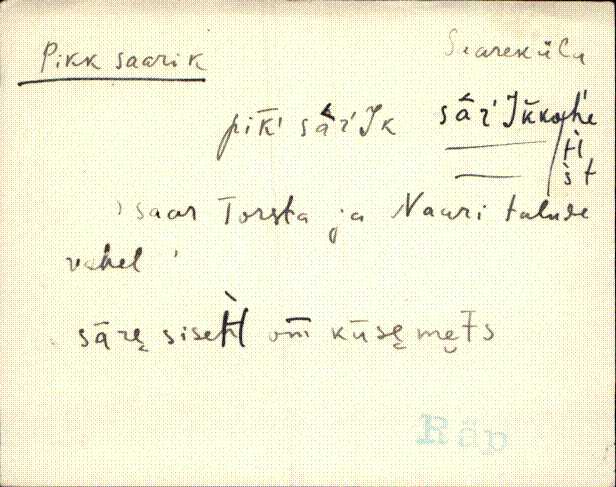 Pikk saarik Saareküla
pīk̄' sâ̄r'Ik sâ̄r'Ik̄kohe
H
st
saar Torsta ja Naari talude
vahel '
sārę siseH om̄ kūsę męt̄s
Räp